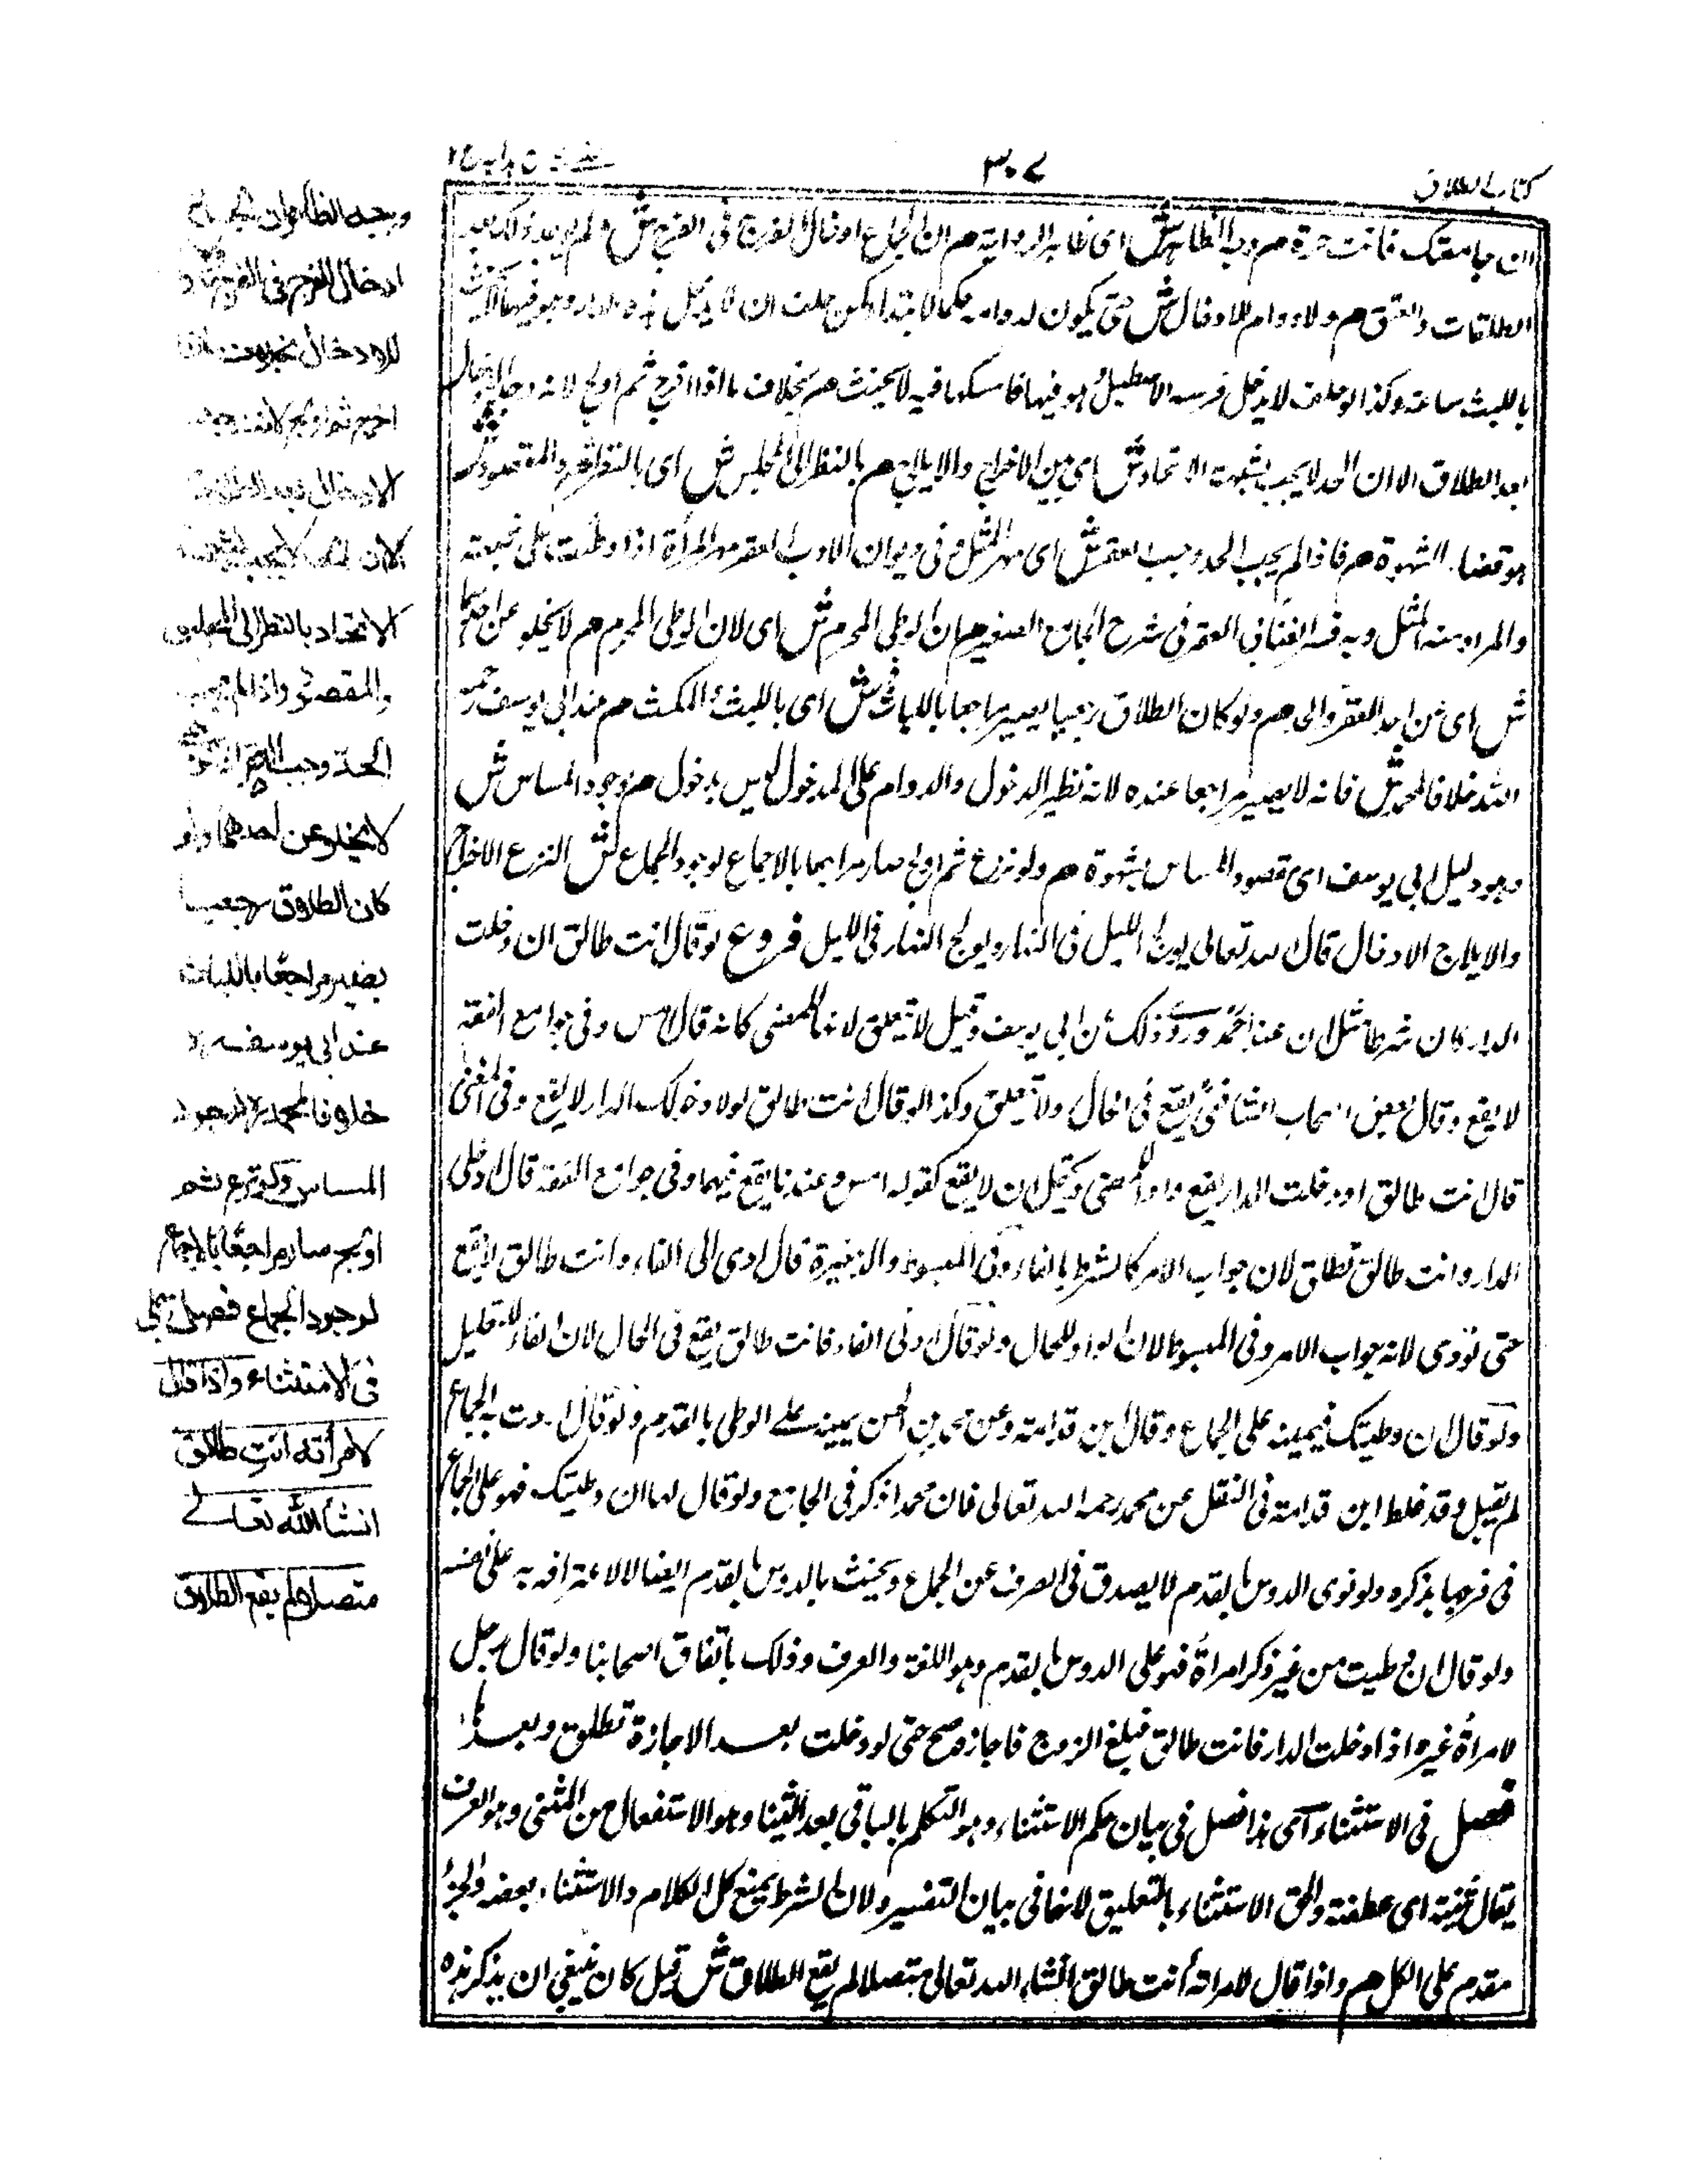 كتاب الطلاق
٣٠٧
ان جامعتك فانت حرة هم وجه الظاهر ش اى ظاهر الرواية هم ان الجماع ادخال الفرج فى الفرج ش ولم يوجد ذلك بعد
الطلقات والعتق هم ولا دوام للادخال ش حتى يكون لدوامه حكم الابتداء كمن حلف ان لا يدخل هذه الدار وهو فيها لا يحنث
باللبث ساعة وكذا لو حلف لا يدخل فرسه الاصطبل وهو فيها فامسكها فيه لا يحنث هم بخلاف ما اذا اخرج ثم اولج لانه وجد الادخال
بعد الطلاق الا ان الحد لا يجب بشبهة الاتحاد ش اى بين الاخراج والايلاج هم بالنظر الى المجلس ش اى بالنظر اليه والمقصود ش
هو قضاء الشهوة هم فاذا لم يجب الحد وجب العقر ش اى مهر المثل وفى ديوان الادب العقر مهر المرأة اذا وطئت على شبهة
والمراد منه المثل وبه فسر العتابى العقر فى شرح الجامع الصغير هم ان الوطى المحرم ش اى لان الوطى المحرم هم لا يخلو عن احدهما
ش اى عن احد العقر والحد هم ولو كان الطلاق رجعيا يصير مراجعا باللباث ش اى باللبث والمكث هم عند ابى يوسف رحمه
الله خلافا لمحمد ش فانه لا يصير مراجعا عنده لانه نظير الدخول والدوام على المدخول ليس بدخول هم لوجود المساس ش
وهو دليل ابى يوسف اى مقصود المساس بشهوة هم ولو نزع ثم اولج صار مراجعا بالاجماع لوجود الجماع ش النزع الاخراج
والايلاج الادخال قال الله تعالى يولج الليل فى النهار ويولج النهار فى الليل فروع لو قال انت طالق ان دخلت
الدار كان شرطا مثل ان عند احمد وروى ذلك عن ابى يوسف وقيل لا تعلق لانها للمعنى كانه قال امس وفى جوامع الفقه
لا يقع وقال بعض اصحاب الشافعى يقع فى الحال ولا تعلق وكذا لو قال انت طالق لولا دخولك الدار لا يقع وفى المغنى
قال انت طالق او دخلت الدار يقع واذ للمضى ويحتمل ان لا يقع كقوله امس وعندنا يقع فيهما وفى جوامع الفقه قال ادخلى
الدار وانت طالق تطلق لان جواب الامر كالشرط بالفاء وفى المبسوط والذخيرة قال ادى الى الفاء وانت طالق لا يقع
حتى تؤدى لانه جواب الامر وفى المبسوط لان الواو للحال ولو قال ادى الفاء فانت طالق يقع فى الحال لان الفاء للتعليل
ولو قال ان وطيتك فيمينه على الجماع وقال ابن قدامة وعن محمد بن الحسن يمينه على الوطى بالقدم ولو قال اردت به الجماع
لم يقبل وقد غلط ابن قدامة فى النقل عن محمد رحمه الله تعالى فان محمدا ذكر فى الجامع ولو قال لها ان وطيتك فهو على الجماع
فى فرجها بذكره ولو نوى الدوس بالقدم لا يصدق فى الصرف عن الجماع ويحنث بالدوس بالقدم ايضا لاعترافه به على نفسه
ولو قال ان وطيت من غير ذكر امرأة فهو على الدوس بالقدم وهو اللغة والعرف وذلك باتفاق اصحابنا ولو قال رجل
لامرأة غيره اذا دخلت الدار فانت طالق فبلغ الزوج فاجاز صح حتى لو دخلت بعد الاجازة تطلق وبعدها
فصل فى الاستثناء اى هذا فصل فى بيان حكم الاستثناء وهو التكلم بالباقى بعد الثنيا وهو الاستفعال من الثنى وهو الصرف
يقال ثنيته اى عطفته والحق الاستثناء بالتعليق لانها فى بيان التفسير ولان الشرط يمنع كل الكلام والاستثناء بعضه والجزء
مقدم على الكل هم واذا قال لامراته انت طالق انشاء الله تعالى متصلا لم يقع الطلاق ش قيل كان ينبغى ان يذكر هذه
وجه الظاهر ان الجماع
ادخال الفرج فى الفرج
للادخال بخلاف ما اذا
اخرج ثم اولج لانه وجد
الادخال بعد الطلاق
الا ان الحد لا يجب بشبهة
الاتحاد بالنظر الى المجلس
والمقصود واذا لم يجب
الحد وجب العقر اذ
لا يخلو عن احدهما ولو
كان الطلاق رجعيا
يصير مراجعا باللباث
عند ابى يوسف رح
خلافا لمحمد رح لوجود
المساس ولو نزع ثم
اولج صار مراجعا بالاجماع
لوجود الجماع فصل
فى الاستثناء واذا قال
لامرأته انت طالق
انشاء الله تعالى
متصلا لم يقع الطلاق